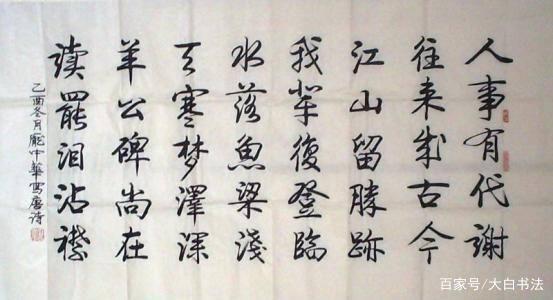 人事有代谢
往来成古今
江山留勝跡
我辈復登臨
水落魚梁淺
天寒梦澤深
羊公碑尚在
读罷泪沾襟
乙酉冬月龐中華写唐诗
百家号/大白书法